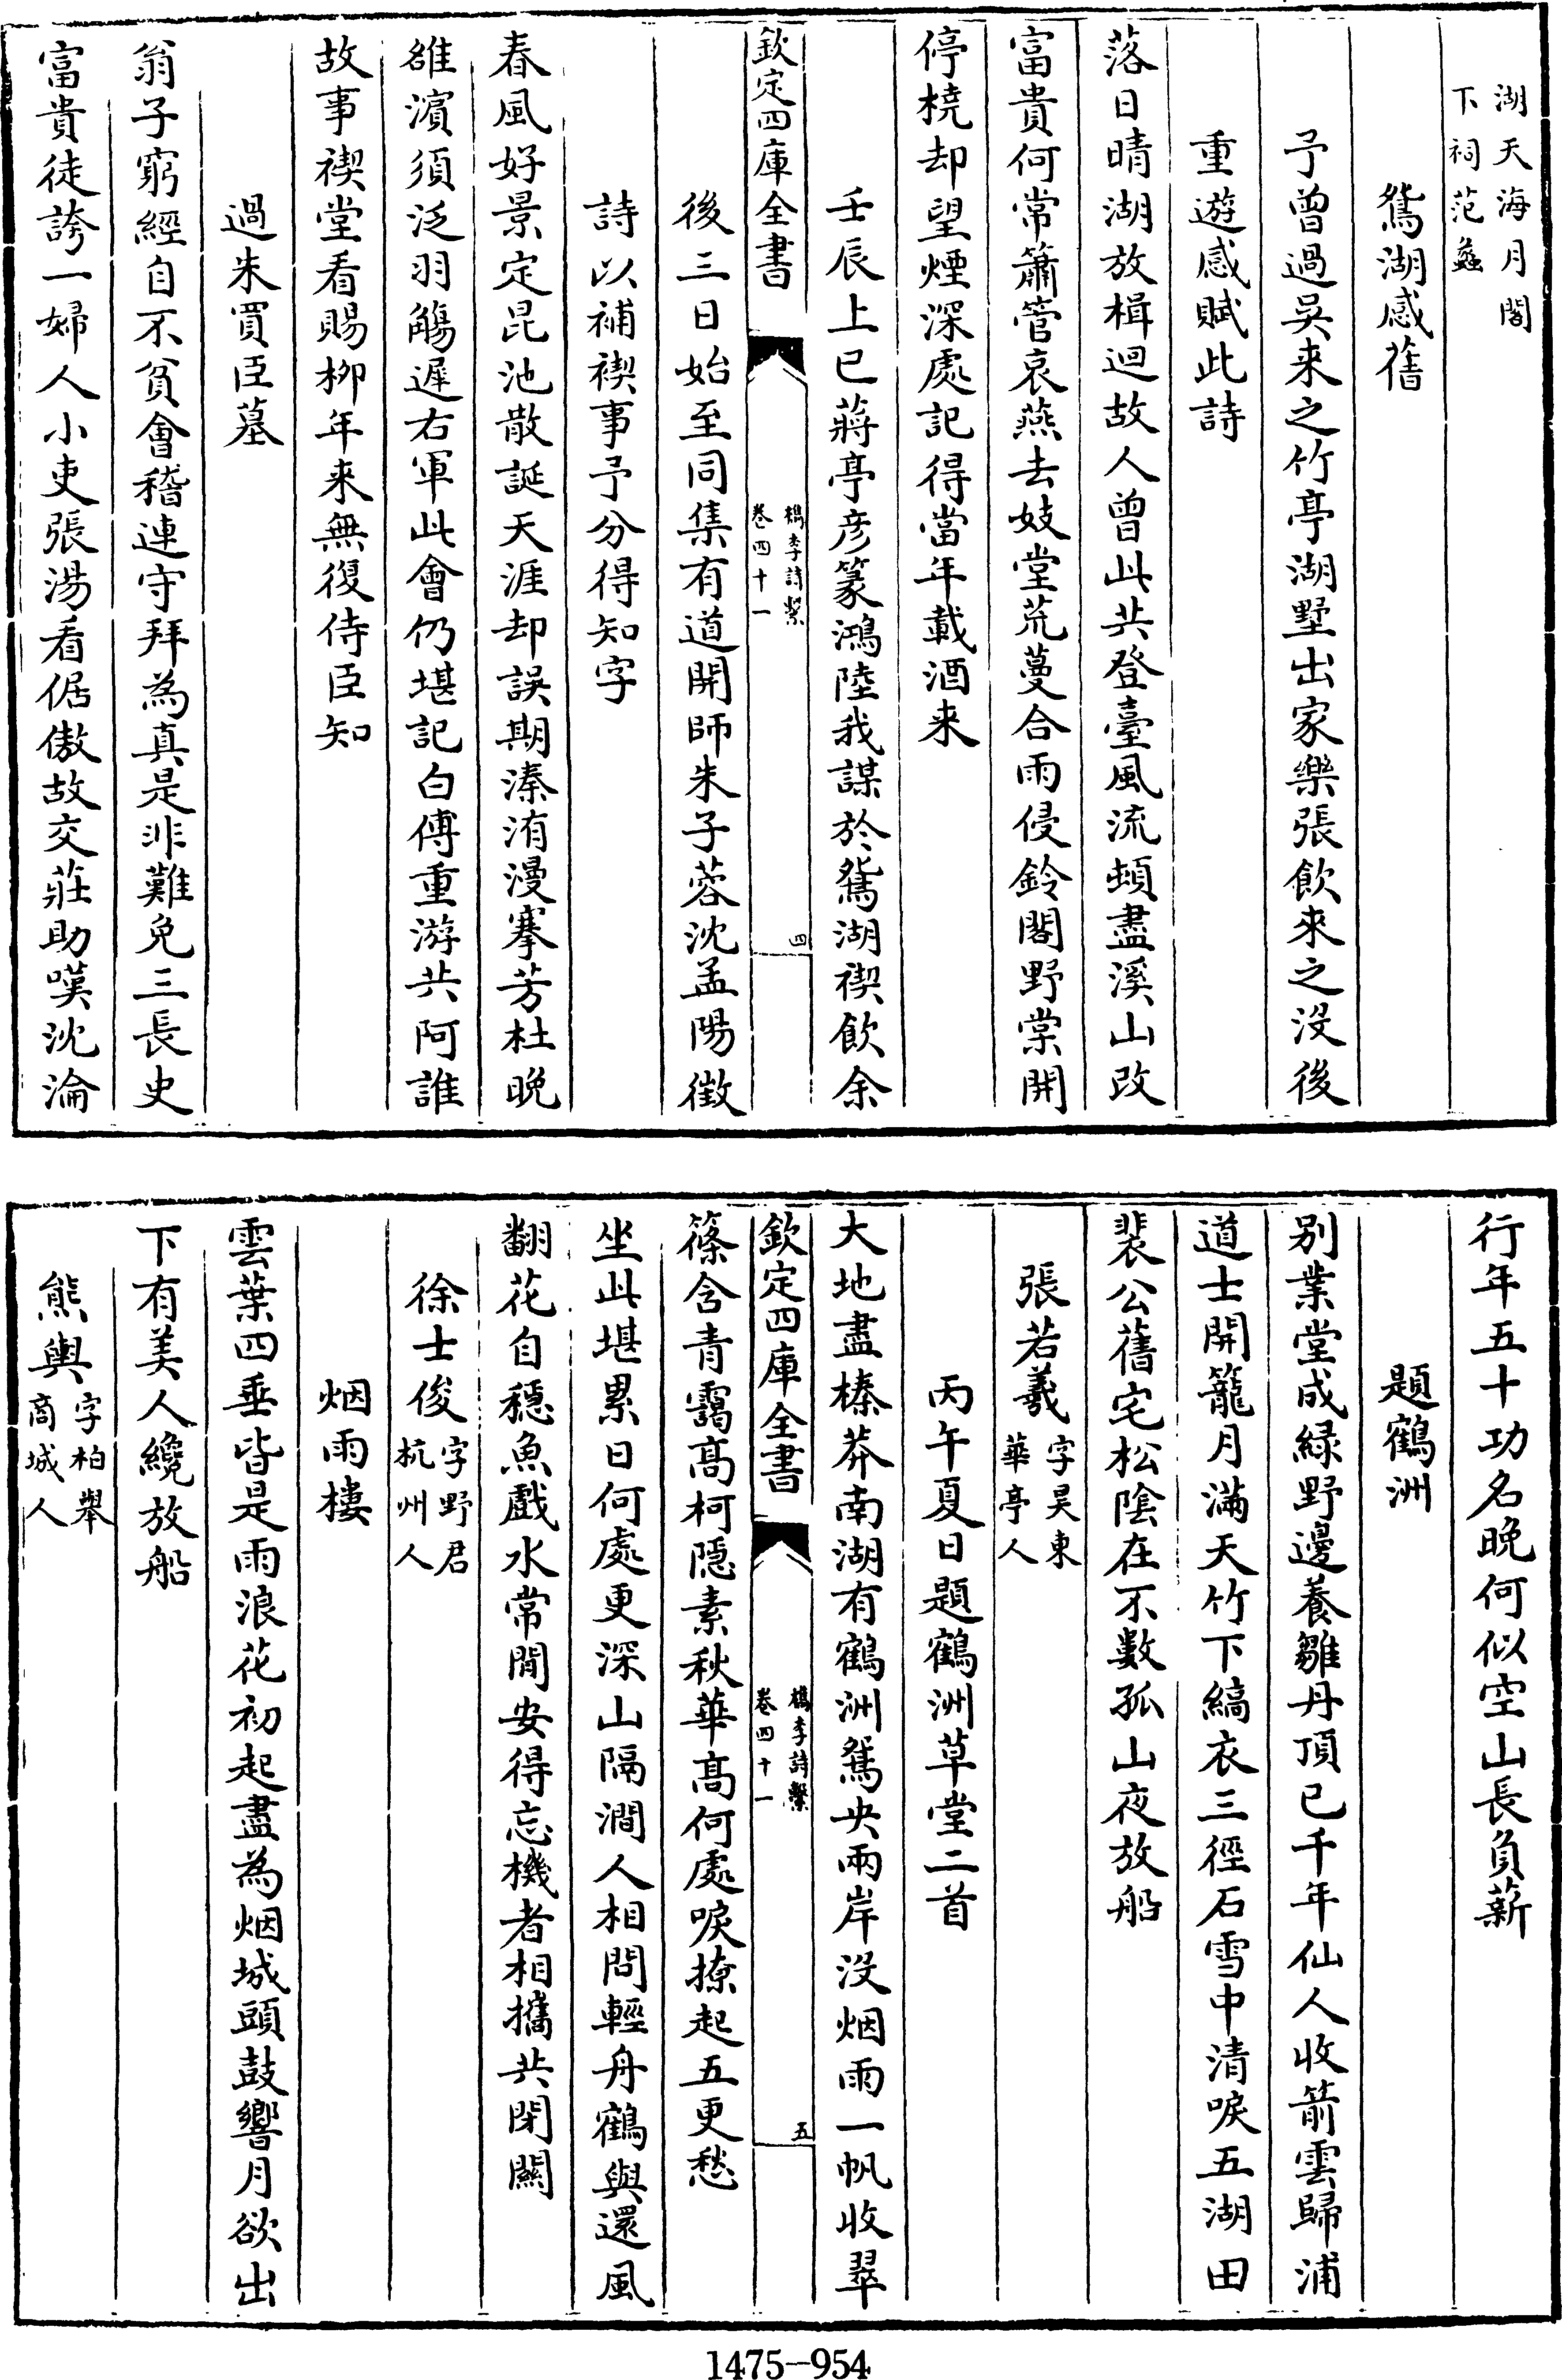 湖天海月閣
下祠范蠡
鴛湖感舊
予曾過吳来之竹亭湖墅出家樂張飲來之没後
重遊感賦此詩
落日晴湖放楫迴故人曾此共登臺風流頓盡溪山改
富貴何常簫管哀燕去妓堂荒蔓合雨侵鈴閣野棠開
停橈却望煙深處記得當年載酒来
壬辰上巳蔣亭彦篆鴻陸我謀於鴛湖禊飲余
欽定四庫全書
檇李詩繫
卷四十一
四
後三日始至同集有道開師朱子蓉沈孟陽徴
詩以補禊事予分得知字
春風好景定昆池散誕天涯却誤期溱洧漫搴芳杜晚
雒濵須泛羽觴遲右軍此會仍堪記白傅重游共阿誰
故事禊堂看賜柳年来無復侍臣知
過朱買臣墓
翁子窮經自不貧會稽連守拜為真是非難免三長史
富貴徒誇一婦人小吏張湯看倨傲故交莊助嘆沈淪
行年五十功名晚何似空山長負薪
題鶴洲
別業堂成緑野邊養雛丹頂已千年仙人收箭雲歸浦
道士開籠月滿天竹下縞衣三徑石雪中清唳五湖田
裴公舊宅松陰在不數孤山夜放船
張若羲
字昊東
華亭人
丙午夏日題鶴洲草堂二首
大地盡榛莽南湖有鶴洲鴛央兩岸没烟雨一帆收翠
欽定四庫全書
檇李詩繫
卷四十一
五
篠含青靄髙柯隱素秋華髙何處唳撩起五更愁
坐此堪累日何處更深山隔澗人相問輕舟鶴與還風
翻花自穩魚戲水常閒安得忘機者相攜共閉闗
徐士俊
字野君
杭州人
烟雨樓
雲葉四垂皆是雨浪花初起盡為烟城頭鼓響月欲出
下有美人纔放船
熊輿
字柏舉
商城人
1475-954